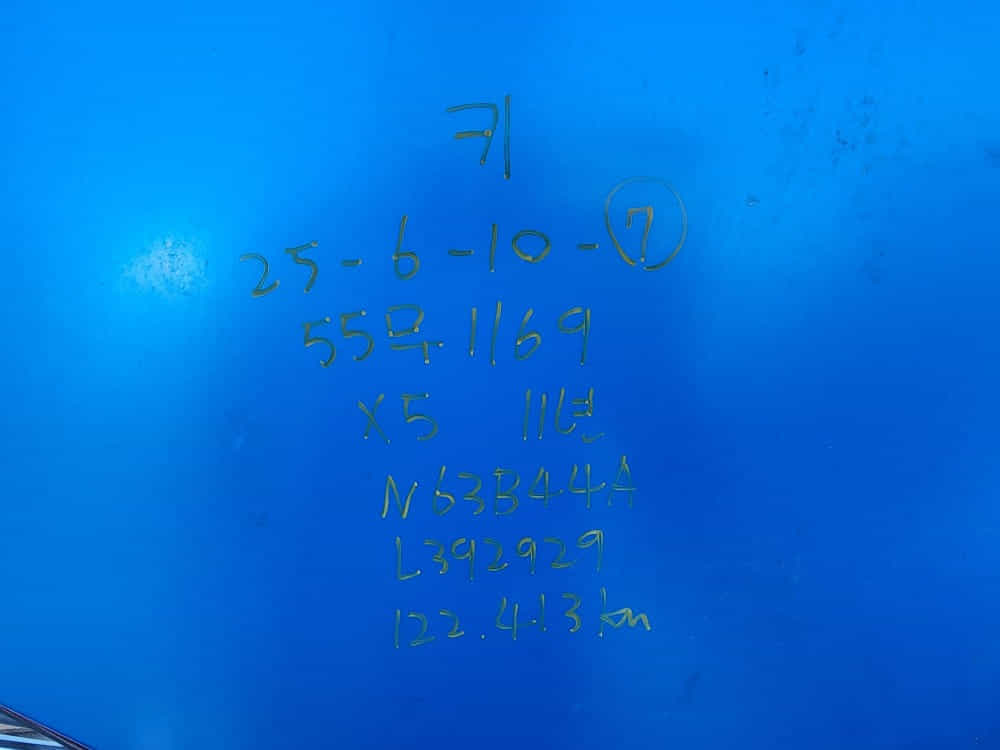 키
25-6-10-⑦
55무1169
X5 11년
N63B44A
L392929
122.413km